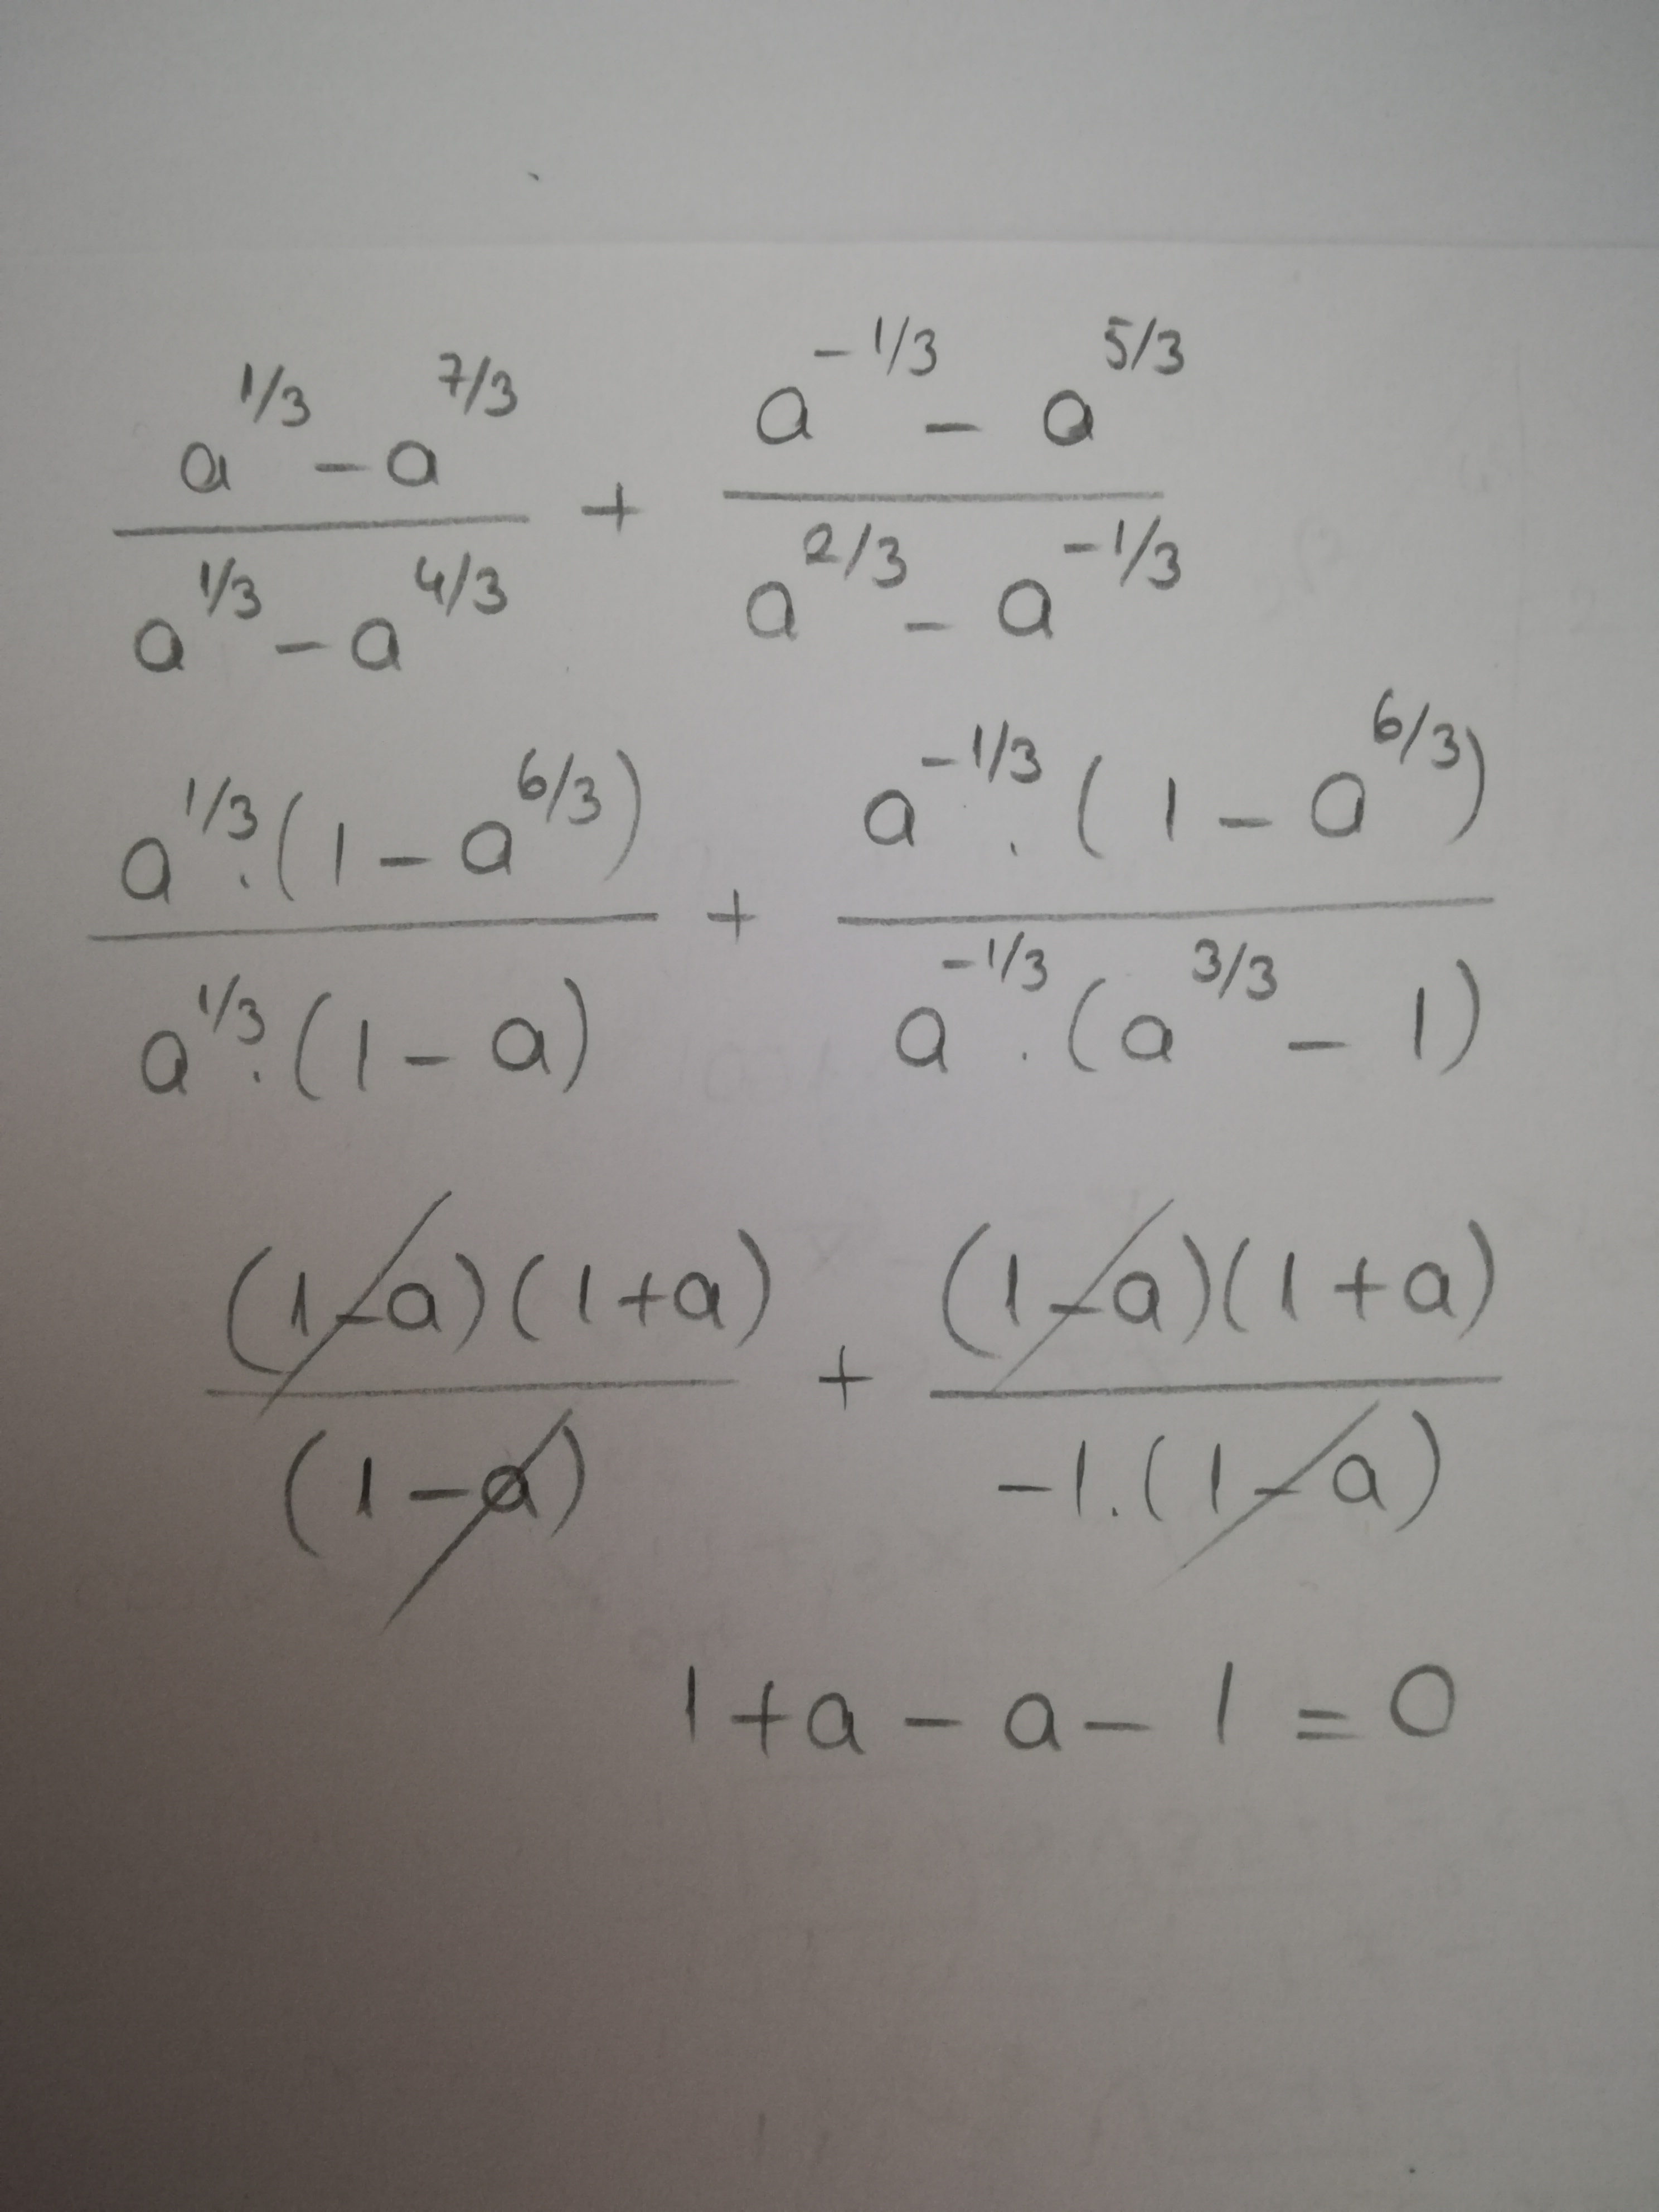 a^{1/3} - a^{7/3} / a^{1/3} - a^{4/3} + a^{-1/3} - a^{5/3} / a^{2/3} - a^{-1/3}
a^{1/3} . (1 - a^{6/3}) / a^{1/3} . (1 - a) + a^{-1/3} . (1 - a^{6/3}) / a^{-1/3} . (a^{3/3} - 1)
(1-a)(1+a) / (1-a) + (1-a)(1+a) / -1.(1-a)
1+a-a-1=0